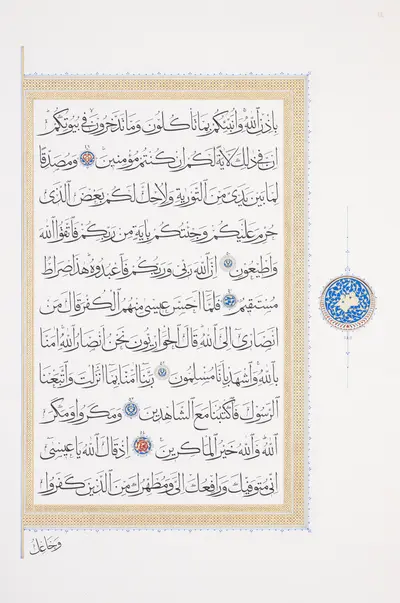 باذن الله وانبئكم بما تاكلون وما تدخرون في بيوتكم
ان في ذلك لاية لكم ان كنتم مؤمنين ومصدقا
لما بين يدي من التورية ولاحل لكم بعض الذي
حرم عليكم وجئتكم باية من ربكم فاتقوا الله
واطيعون ان الله ربي وربكم فاعبدوه هذا صراط
مستقيم فلما احس عيسى منهم الكفر قال من
انصاري الى الله قال الحواريون نحن انصار الله امنا
بالله واشهد بانا مسلمون ربنا امنا بما انزلت واتبعنا
الرسول فاكتبنا مع الشاهدين ومكروا ومكر
الله والله خير الماكرين اذ قال الله يا عيسى
اني متوفيك ورافعك الي ومطهرك من الذين كفروا
وجاعل